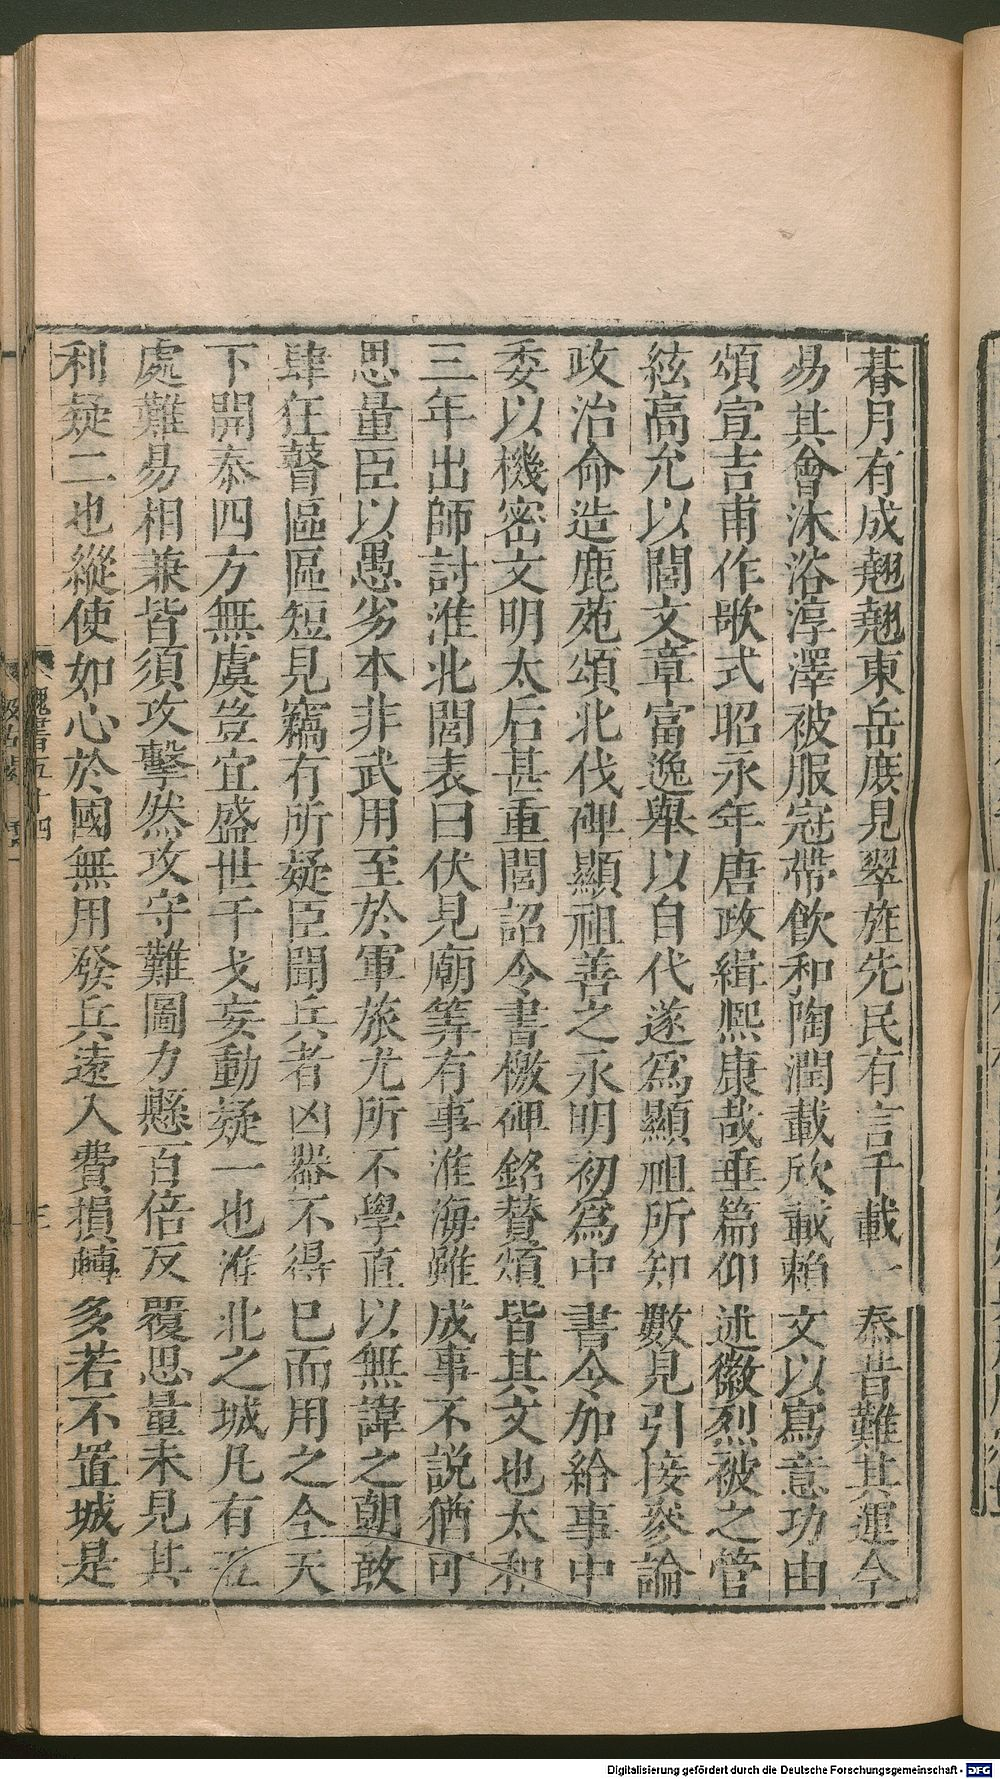 朞月有成翹翹東岳庶見翠旌先民有言千載一泰昔難其運今
易其會沐浴淳澤被服冠帶飲和陶潤載欣載賴文以寫意功由
頌宣吉甫作歌式昭永年唐政緝熙康哉垂篇仰述徽烈被之管
絃高允以閭文章富逸舉以自代遂爲顯祖所知數見引接參論
政治命造鹿苑頌北伐碑顯祖善之永明初爲中書令加給事中
委以機密文明太后甚重閭詔令書檄碑銘贊頌皆其文也太和
三年出師討淮北閭表曰伏見廟筭有事淮海雖成事不説猶可
思量臣以愚劣本非武用至於軍旅尤所不學直以無諱之朝敢
肆狂瞽區區短見竊有所疑臣聞兵者凶器不得已而用之今天
下開泰四方無虞豈宜盛世干戈妄動疑一也淮北之城凡有五
處難易相兼皆須攻擊然攻守難圖力懸百倍反覆思量未見其
利疑二也縱使如心於國無用發兵遠入費損轉多若不置城是
魏書五十四
三
Digitalisierung gefördert durch die Deutsche Forschungsgemeinschaft - DFG